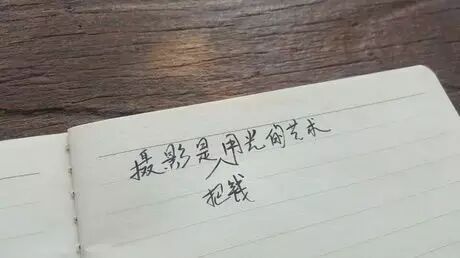 摄影是用光的艺术
把钱